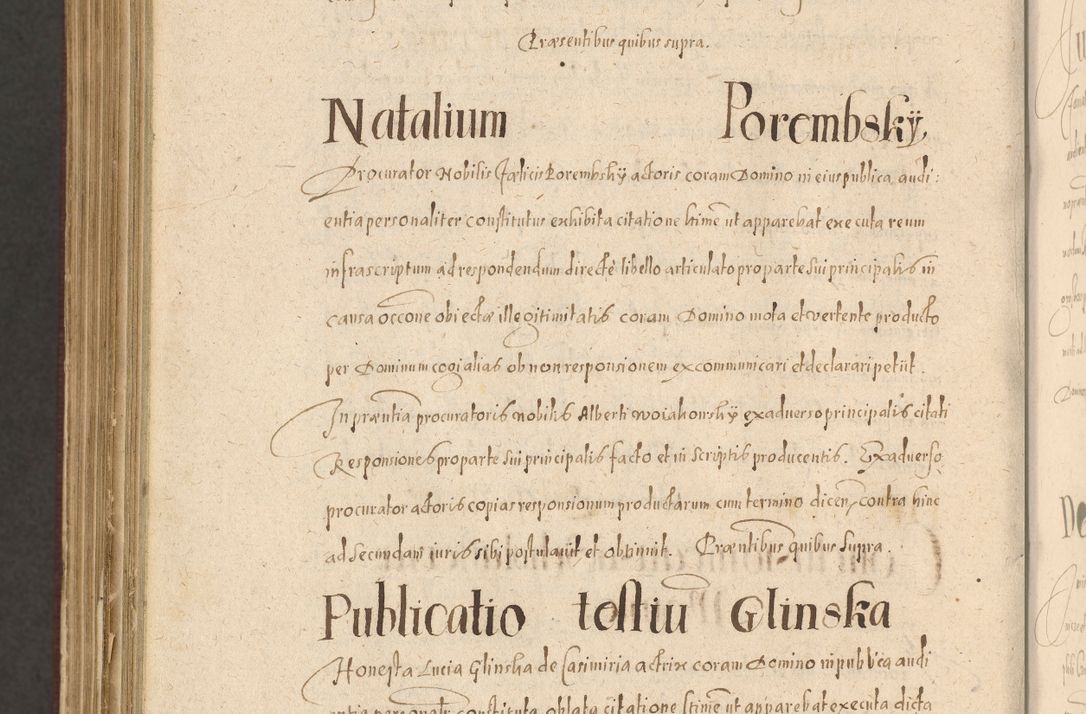 Præsentibus quibus supra.
Natalium Porembskÿ
Procurator Nobilis Fælicis Porembskÿ actoris coram Domino in eius publica audi:
entia personaliter constitutus exhibita citatione hinc ut apparebat executa reum
infrascriptum ad respondendum directè libello articulato pro parte sui principalis in
causa occone obiectæ illegitimitatis coram Domino mota et vertente producto
per Dominum cogi alias ob non responsionem excommunicari et declarari petiit.
In præntia procuratoris nobilis Alberti Woiakowskÿ ex adverso principalis citati
Responsiones pro parte sui principalis facto et in scriptis producentis. Ex adverso
procurator actoris copias responsionum productarum cum termino dicen contra hinc
ad secundam iuris sibi postulavit et obtinuit. Præntibus quibus supra.
Publicatio testiū Glinska
Honesta Lucia Glinska de Casimiria actrix coram Domino in publica audi
entia personalr constituta oblata citatione hinc ut apparebat executa dicta